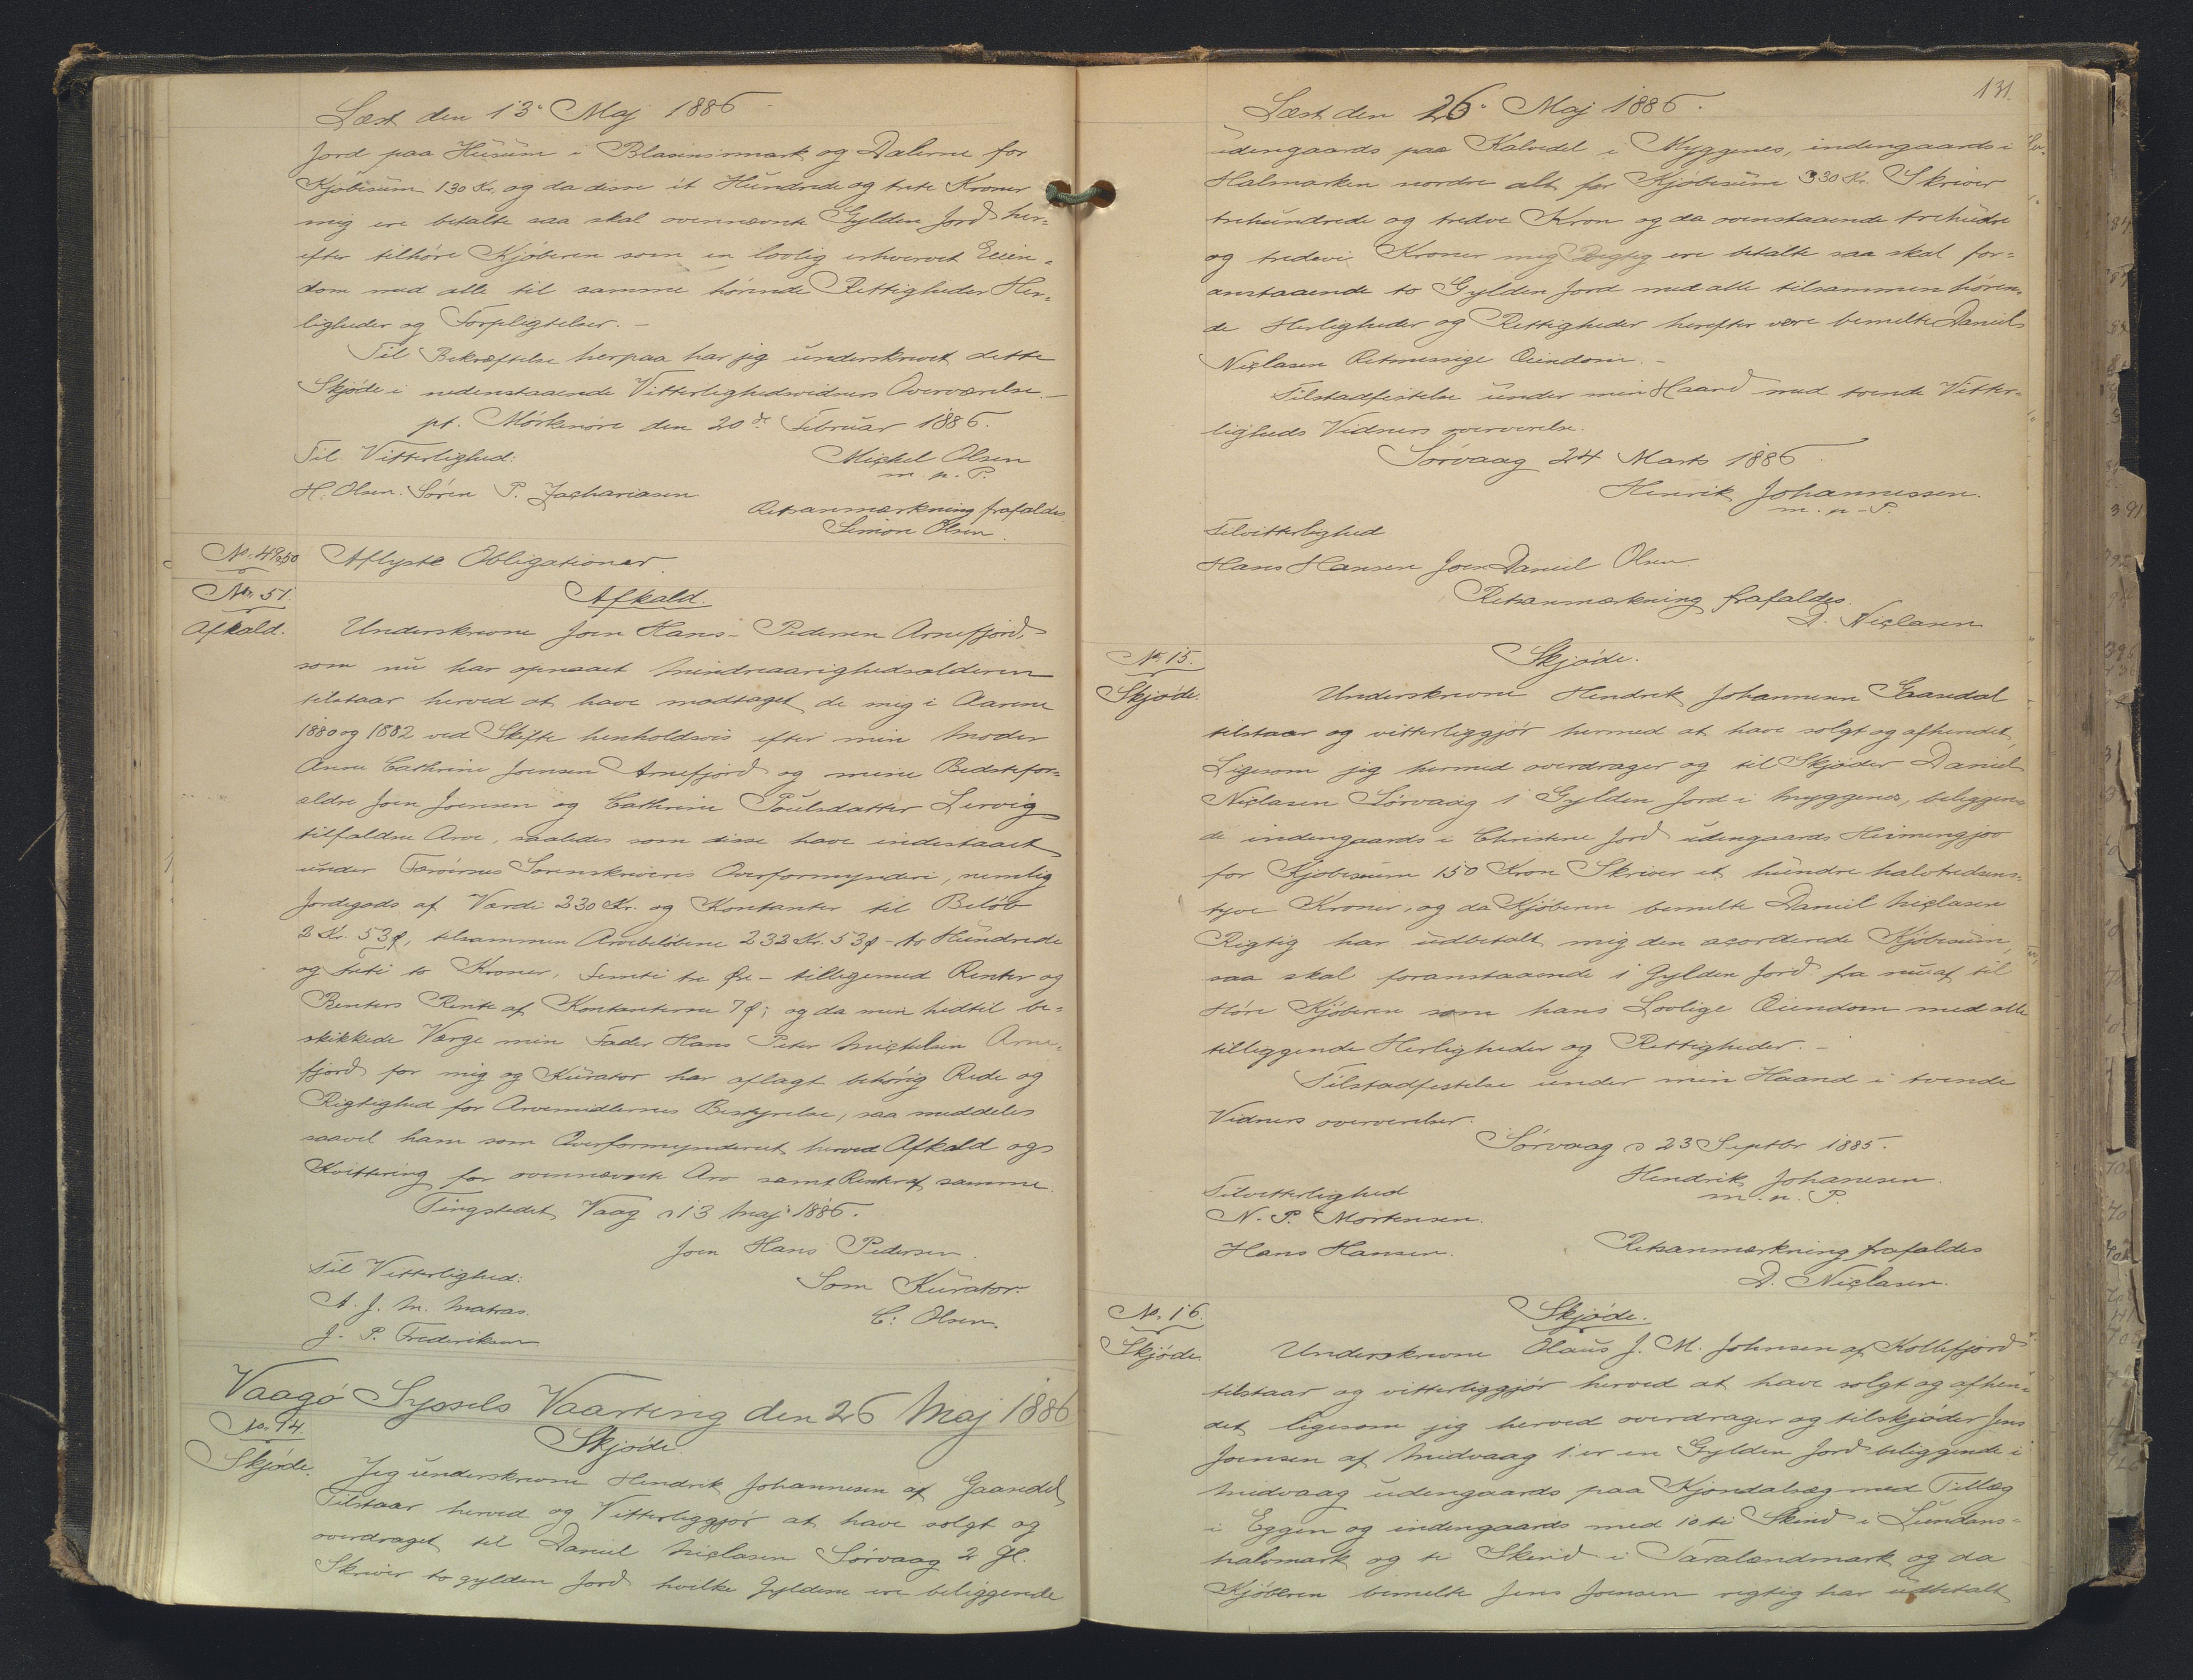 Læst den 13 Maj 1886
Jord paa Húsúm i Blasensmark og Dalerne for
Kjöbesúm 130 Kr. og da disse ét Húndrede og treti Kroner
mig ere betalte saa skal ovennævnte Gylden Jord her=
efter tilhöre Kjöberen som en lovlig erhvervet Eien=
dom med alle til samme hörende Rettigheder Her=
ligheder og Forpligtelser. –
Til Bekræftelse herpaa har jeg únderskrevet dette
Skjöde i nedenstaaende Vitterlighedsvidners Overværelse. –
pt. Mörkenöre den 20de Febrúar 1886.
Til Vitterlighed:
Michel Olsen
m. p. P.
H. Olsen. Sören P. Zachariasen
Retsanmærkning frafaldes
Simon Olsen.
No. 49&50 Aflyste Obligationer.
No. 51.
Afkald.
Afkald.
Underskrevne Joen Hans Pedersen Arnefjord,
som nú har opnaaet Mindreaarighedsalderen
tilstaar herved at have modtaget de mig i Aarene
1880 og 1882 ved Skifte henholdsvis efter min Moder
Anne Cathrine Joensen Arnefjord og mine Bedstefor=
ældre Joen Joensen og Cathrine Poúlsdatter Lervig
tilfaldne Arve, saaledes som disse have indestaaet
únder Færöernes Sorenskriveries Overformynderi, nemlig
Jordegods af Værdi 230 Kr. og Kontanter til Belöb
2 Kr. 53 Ø, tilsammen Arvebelöbene 232 Kr. 53 Ø – to Húndrede
og treti to Kroner, femti tre Øre – tilligemed Renter og
Renters Rente af Kontanterne 7 Ø; og da min hidtil be=
skikkede Værge min Fader Hans Peter Michelsen Arne=
fjord for mig og Kúrator har aflagt behörig Rede og
Rigtighed for Arvemidlernes Bestyrelse, saa meddeles
saavel ham som Overformynderiet herved Afkald og
Kvittering for ovennævnte Arv samt Renter af samme.
Tingstedet Vaag d 13 Maj 1886.
Joen Hans Pedersen.
Til Vitterlighed:
Som Kúrator:
A. J. M. Matras.
C. Olsen.
J. P. Frederiksen
Vaagö Syssels Vaarting den 26 Maj 1886
No. 14.
Skjöde.
Skjöde.
Jeg únderskrevne Hendrik Johannesen af Gaasedal
Tilstaar herved og Vitterliggjör at have solgt og
overdraget til Daniel Niclasen Sörvaag 2 Gl.
Skriver to gylden Jord hvilke Gyldene ere beliggende
131.
Læst den 26 Maj 1886.
údengaards paa Kalvedel i Myggenes, indengaards i
Halmarken nordre alt for Kjöbesúm 330 Kr. Skriver
trehúndrede og tredve Kron og da ovenstaaende trehúdre
og tredevi Kroner mig Rigtig ere betalte saa skal for=
anstaaende to Gylden Jord med alle tilsammen hören=
de Herligheder og Rettigheder herefter være bemelte Daniel
Niclasen Retmessige Eiendom. –
Tilstadfestelse únder min Haand med tvende Vitter=
ligheds Vidners oververelse.
Sörvaag 24 Marts 1886.
Henrik Johannessen.
m. p. P.
Tilvitterlighed
Hans Hansen Joen Daniel Olsen
Retsanmærkning frafaldes.
D. Niclasen
No. 15.
Skjöde.
Skjöde.
Underskrevne Hendrik Johannesen Gaasedal
tilstaar og vitterliggjör hermed at have solgt og afhendet,
Ligesom jeg hermed overdrager og til Skjöder Daniel
Niclasen Sörvaag 1 Gylden Jord i Myggenes, beliggen=
de indengaards i Christine Jord údengaards Heimengjov
for Kjöbesúm 150 Kron Skriver et húndre halvtredsens=
tyve Kroner, og da Kjöberen bemelte Daniel Niclasen
Rigtig har údbetalt mig den acorderede Kjöbesúm,
saa skal foranstaaende 1 Gylden Jord fra núaf til
Höre Kjöberen som hans Lovlige Eiendom med alle
tilliggende Herligheder og Rettigheder. –
Tilstadfestelse únder min Haand i tvende
Vidners oververelser.
Sörvaag d 23 Septbr 1885.
Hendrik Johanesen.
m. p. P.
Tilvitterlighed
N. P. Mortensen.
Hans Hansen.
Retsanmærkning frafaldes
D. Niclasen.
No. 16.
Skjöde.
Skjöde.
Underskrevne Olaús J. M. Johnsen af Kollefjord
tilstaar og vitterliggjör herved at have solgt og afhen=
det ligesom jeg herved overdrager og tilskjöder Jens
Joensen af Midvaag 1 er en Gylden Jord beliggende i
Midvaag údengaards paa Kjondalsæg med Tillæg
i Eggen og indengaards med 10 ti Skind i Lúndans=
halvmark og ti Skind i Taralandmark og da
Kjöberen bemelte Jens Joensen rigtig har údbetalt